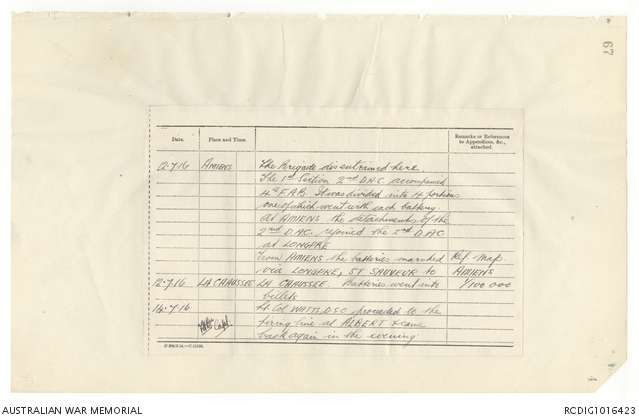 67
Date. Place and Time. Remarks or References to Appendices, &c., attached.
12.7.16 AMIENS The Brigade disentrained here
The 1st Section 2nd D.A.C. accompanied
4th F.A.B. It was divided into 4 portions
one of which went with each battery.
At AMIENS the detachments of the
2nd D.A.C. rejoined the 2nd D.A.C
at LONGPRE
From AMIENS the batteries marched Ref. Map
via LONGPRE, ST SAUVEUR to AMIENS
12.7.16 LA CHAUSSEE LA CHAUSSEE. Batteries went into 1/100 000
billets
14.7.16 Lt. Col WATTS D.S.O. proceeded to the
firing line at ALBERT & came
back again in the evening
AUSTRALIAN WAR MEMORIAL
RCDIG1016423